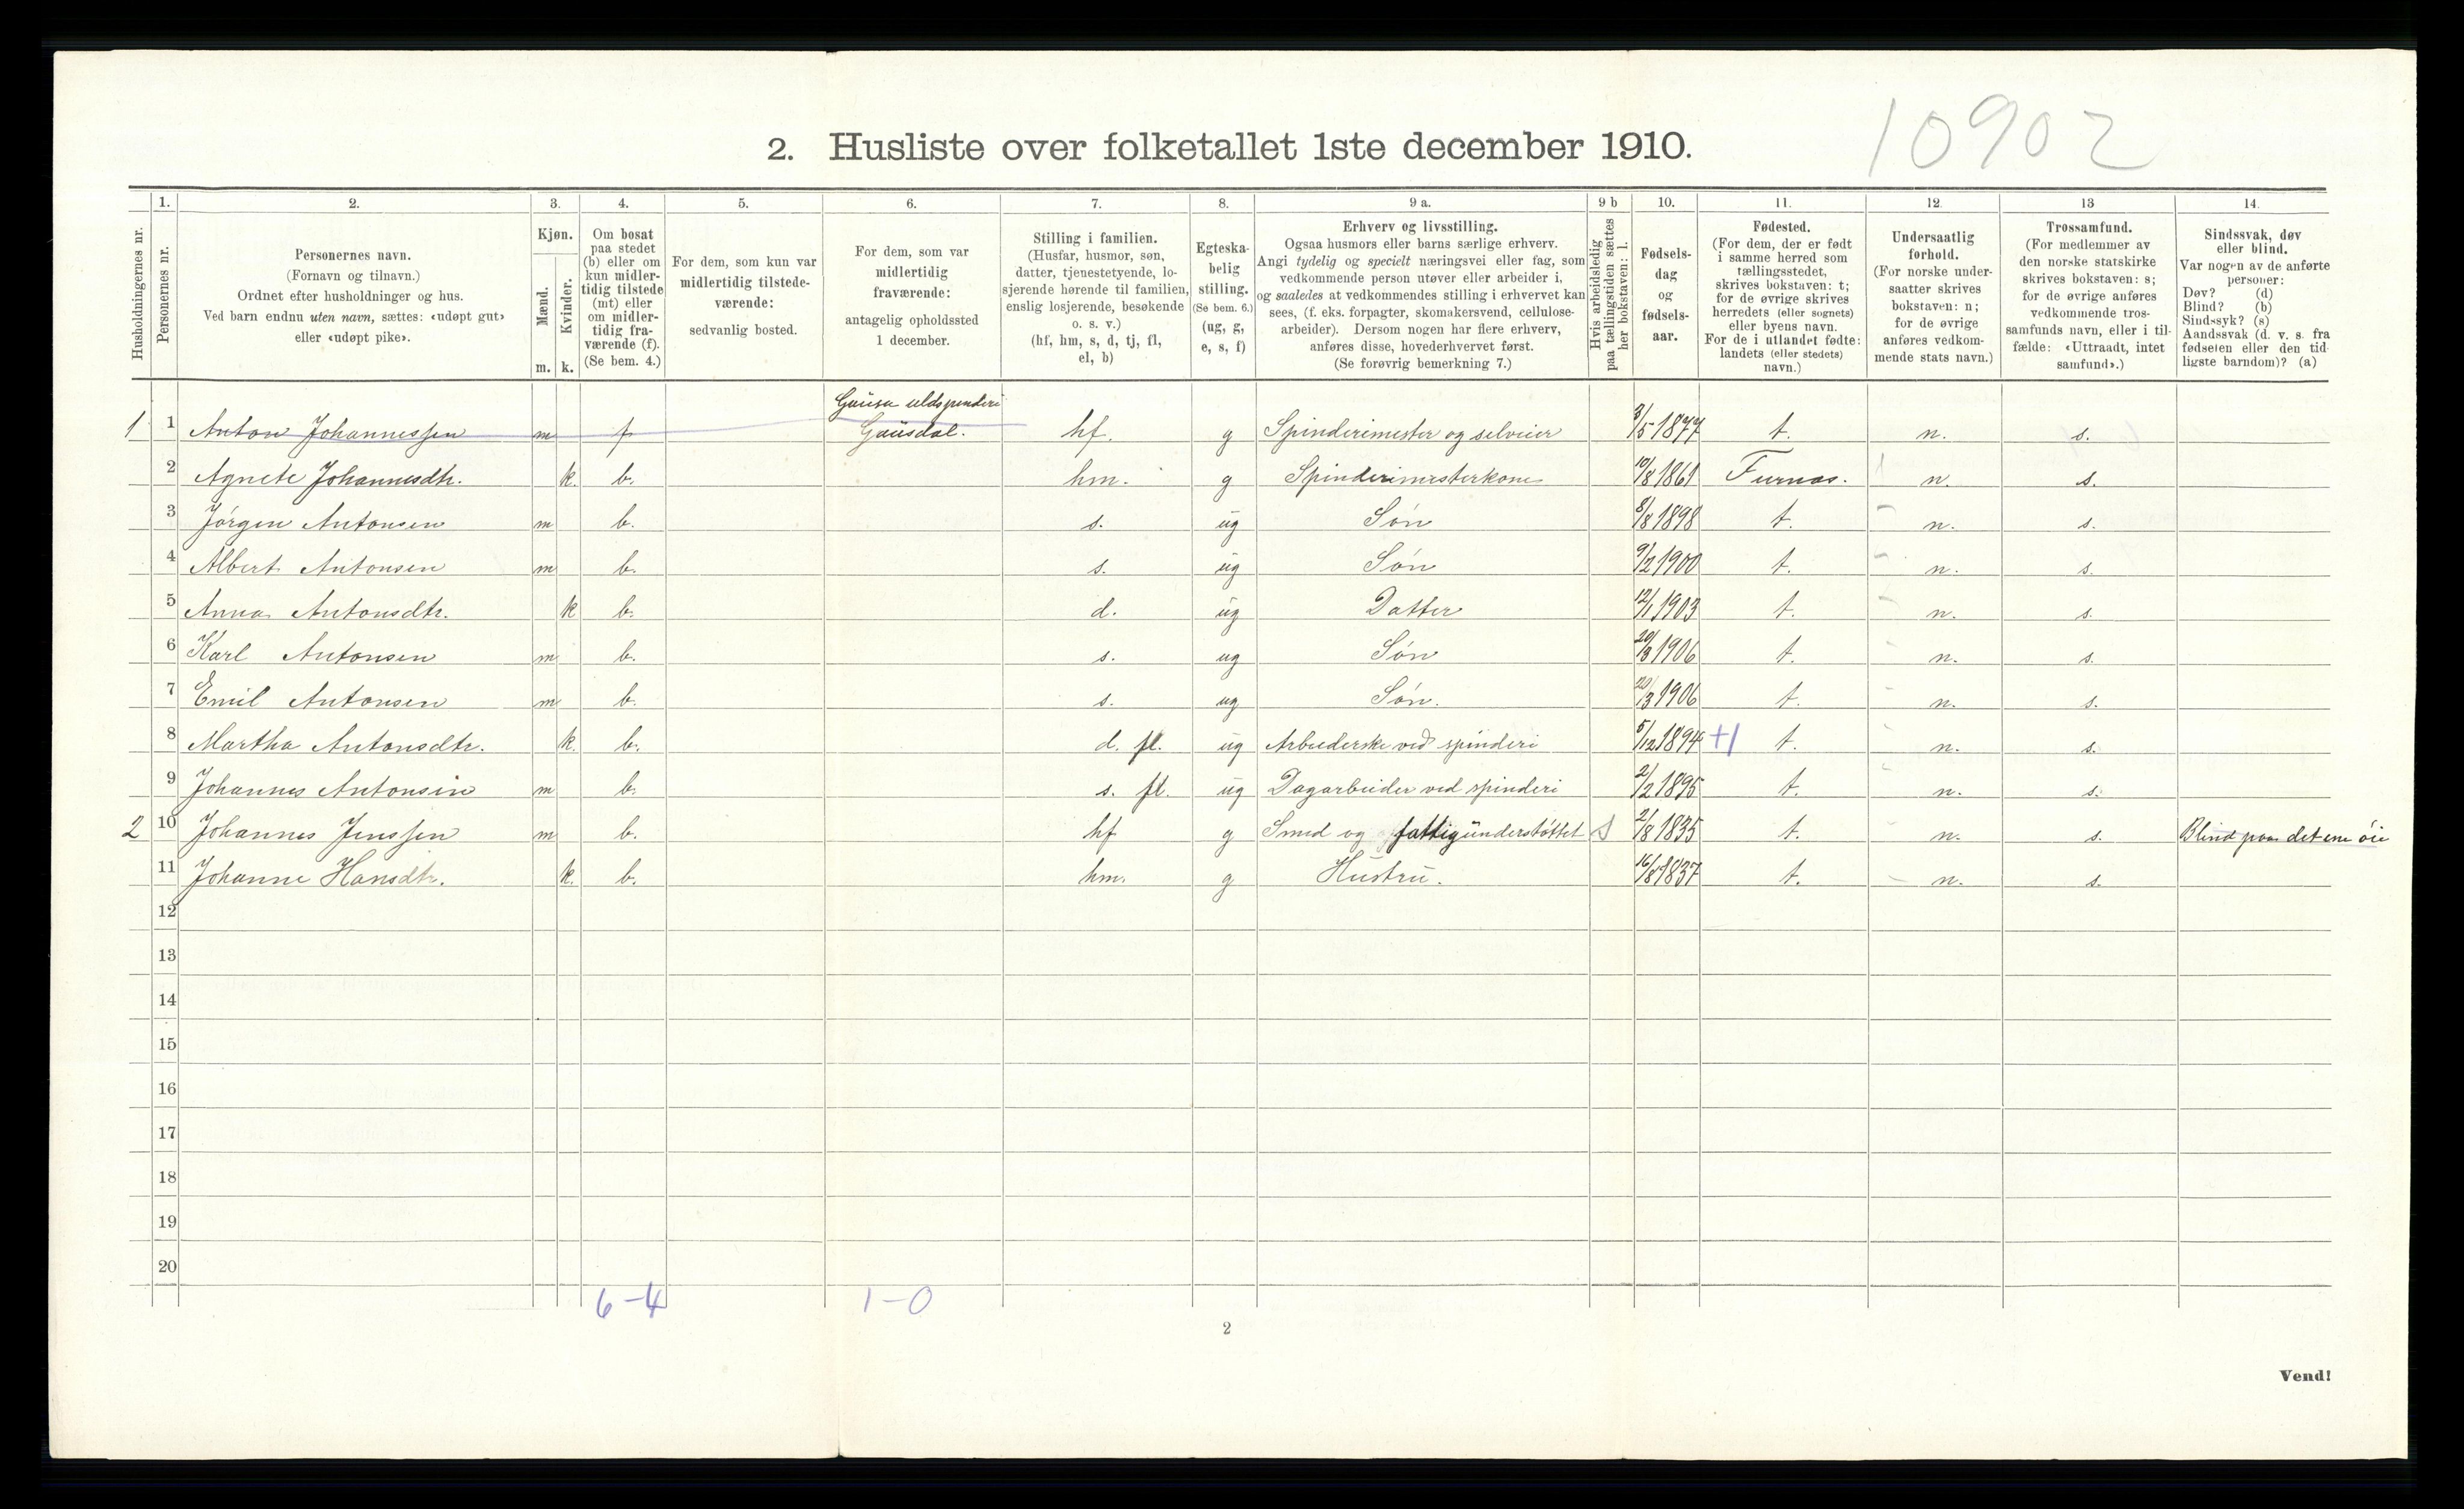 10902
2. Husliste over folketallet 1ste december 1910.
Husholdningernes nr.
1.
Personernes nr.
2.
Personernes navn.
(Fornavn og tilnavn.)
Ordnet efter husholdninger og hus.
Ved barn endnu uten navn, sættes: «udøpt gut»
eller «udøpt pike».
3.
Kjøn.
Mænd.
Kvinder.
m. k.
4.
Om bosat
paa stedet
(b) eller om
kun midler-
tidig tilstede
(mt) eller
om midler-
tidig fra-
værende (f).
(Se bem. 4.)
5.
For dem, som kun var
midlertidig tilstede-
værende:
sedvanlig bosted.
6.
For dem, som var
midlertidig
fraværende:
antagelig opholdssted
1 december.
7.
Stilling i familien.
(Husfar, husmor, søn,
datter, tjenestetyende, lo-
sjerende hørende til familien,
enslig losjerende, besøkende
o. s. v.)
(hf, hm, s, d, tj, fl,
el, b)
8.
Egteska-
belig
stilling.
(Se bem. 6.)
(ug, g,
e, s, f)
9 a.
Erhverv og livsstilling.
Ogsaa husmors eller barns særlige erhverv.
Angi tydelig og specielt næringsvei eller fag, som
vedkommende person utøver eller arbeider i,
og saaledes at vedkommendes stilling i erhvervet kan
sees, (f. eks. forpagter, skomakersvend, cellulose-
arbeider). Dersom nogen har flere erhverv,
anføres disse, hovederhvervet først.
(Se forøvrig bemerkning 7.)
9 b
Hvis arbeidsledig
paa tællingstiden sættes
her bokstaven: l.
10.
Fødsels-
dag
og
fødsels-
aar.
11.
Fødested.
(For dem, der er født
i samme herred som
tællingsstedet,
skrives bokstaven: t;
for de øvrige skrives
herredets (eller sognets)
eller byens navn.
For de i utlandet fødte:
landets (eller stedets)
navn.)
12.
Undersaatlig
forhold.
(For norske under-
saatter skrives
bokstaven: n;
for de øvrige
anføres vedkom-
mende stats navn.)
13
Trossamfund.
(For medlemmer av
den norske statskirke
skrives bokstaven: s;
for de øvrige anføres
vedkommende tros-
samfunds navn, eller i til-
fælde: «Uttraadt, intet
samfund».)
14.
Sindssvak, døv
eller blind.
Var nogen av de anførte
personer:
Døv? (d)
Blind? (b)
Sindssyk? (s)
Aandssvak (d. v. s. fra
fødselen eller den tid-
ligste barndom)? (a)
Gausa uldspinderi
1 1 Anton Johannessen m f Gausdal. hf. g Spinderimester og selveier 3/5 1877 t. n. s.
2 Agnete Johannesdtr. k. b. hm. g Spinderimesterkone 10/8 1861 Furnæs. n. s.
3 Jørgen Antonsen m b. s. ug Søn 8/8 1898 t. n. s.
4 Albert Antonsen m b. s. ug Søn 9/2 1900 t. n. s.
5 Anna Antonsdtr. k b. d. ug Datter 12/1 1903 t. n. s.
6 Karl Antonsen m b. s. ug Søn 20/3 1906 t. n. s.
7 Emil Antonsen m b. s. ug Søn. 20/3 1906 t. n. s.
8 Martha Antonsdtr. k. b. d. fl. ug Arbeiderske ved spinderi 5/12 1894 +1 t. n. s.
9 Johannes Antonsen m b. s. fl. ug Dagarbeider ved spinderi 2/2 1895 t. n. s.
2 10 Johannes Jenssen m b. hf g Smed og fattigunderstøttet 2/8 1835 t. n. s. Blind paa det ene øie
11 Johanne Hansdtr. k. b. hm. g Hustru. 16/8 1837 t. n. s.
12
13
14
15
16
17
18
19
20
6-4 1-0
2
Vend!